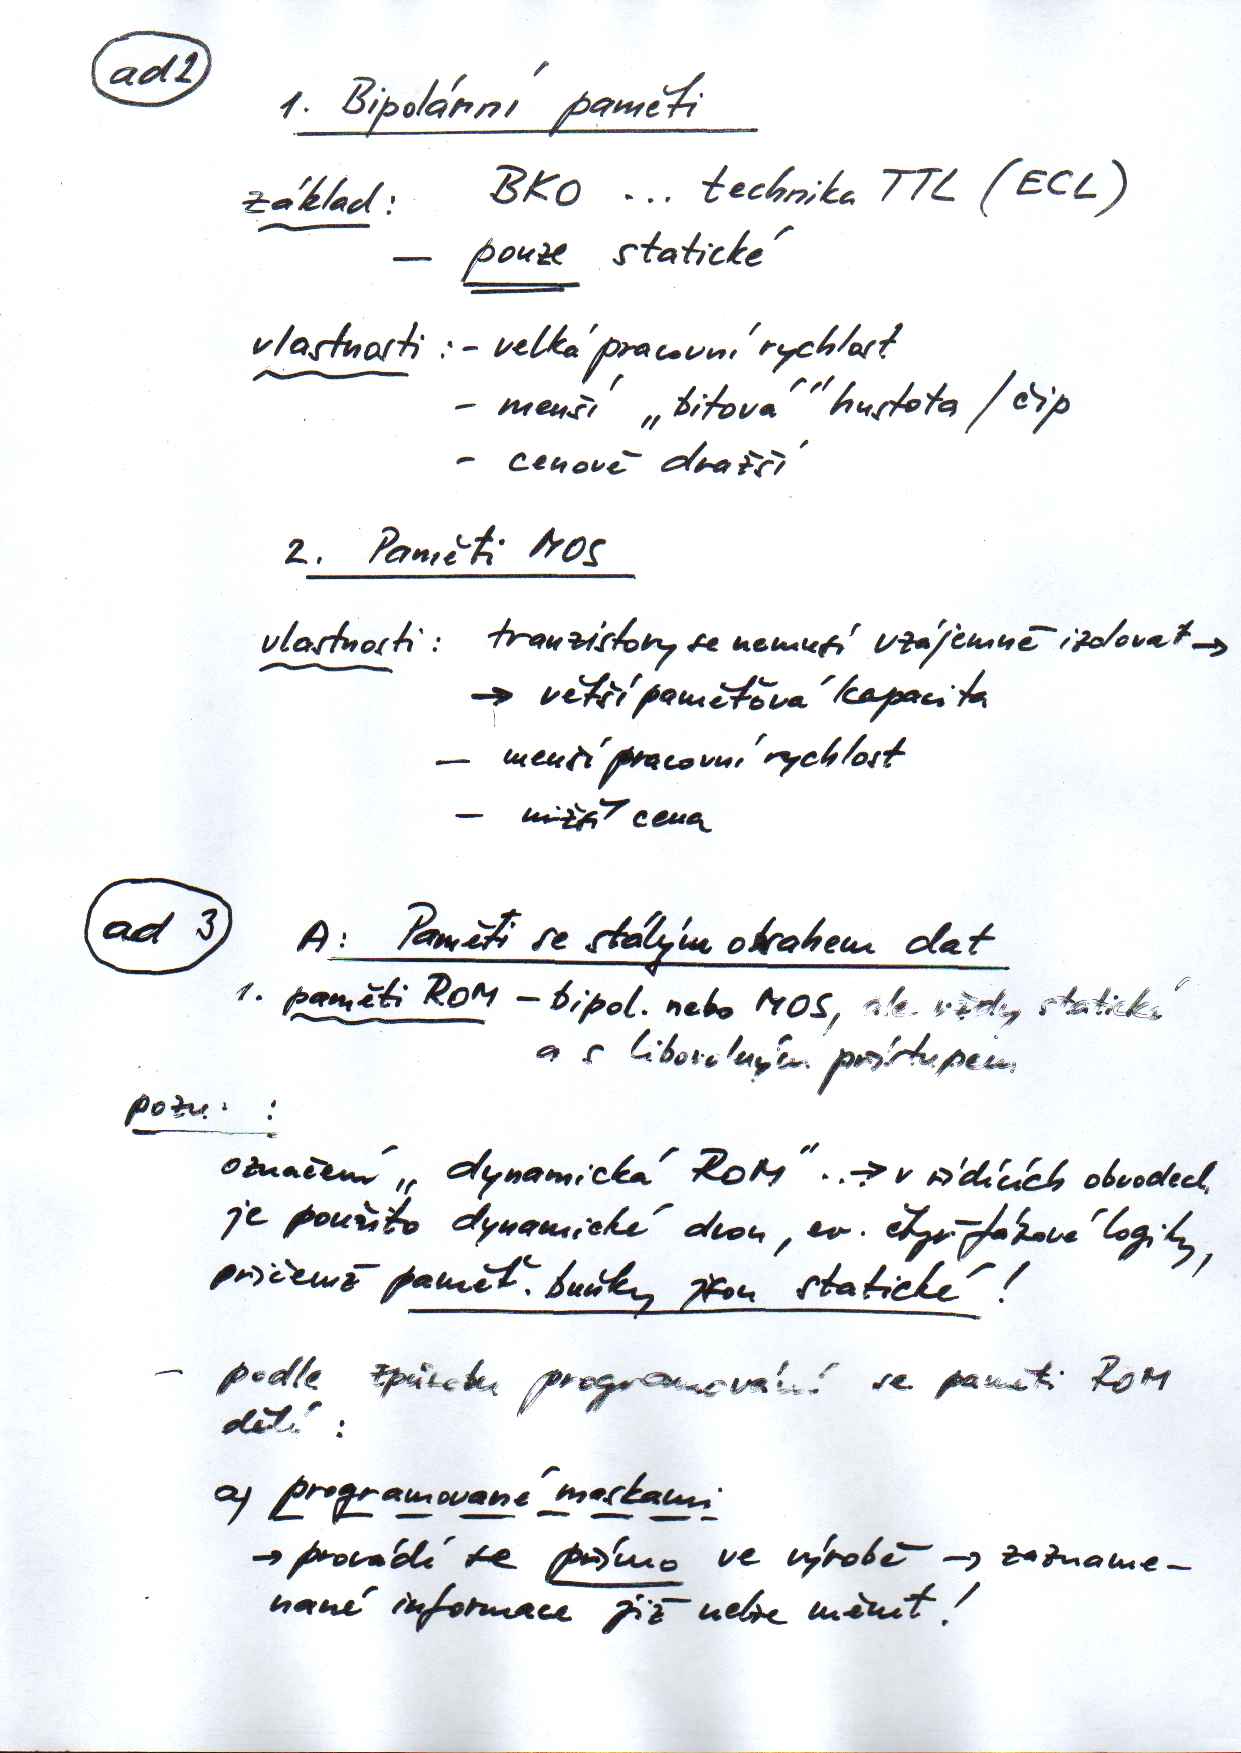 ad 2
1. Bipolární paměti
základ: BKO ... technika TTL (ECL)
— pouze statické
vlastnosti : - velká pracovní rychlost
- menší „bitová" hustota / čip
- cenově dražší
2. Paměti MOS
vlastnosti : tranzistory se nemusí vzájemně izolovat →
→ větší paměťová kapacita
— menší pracovní rychlost
— nižší cena
ad 3
A: Paměti se stálým obsahem dat
1. paměti ROM – bipol. nebo MOS, ale vždy statické
a s libovolným přístupem
pozn. :
označení „dynamická ROM" ..→ v řídících obvodech
je použito dynamické dvou, ev. čtyř-fázové logiky,
přičemž paměť. buňky jsou statické !
— podle způsobu programování se paměti ROM
dělí :
a) programované maskami
→ provádí se přímo ve výrobě → zazname-
nané informace již nelze měnit !